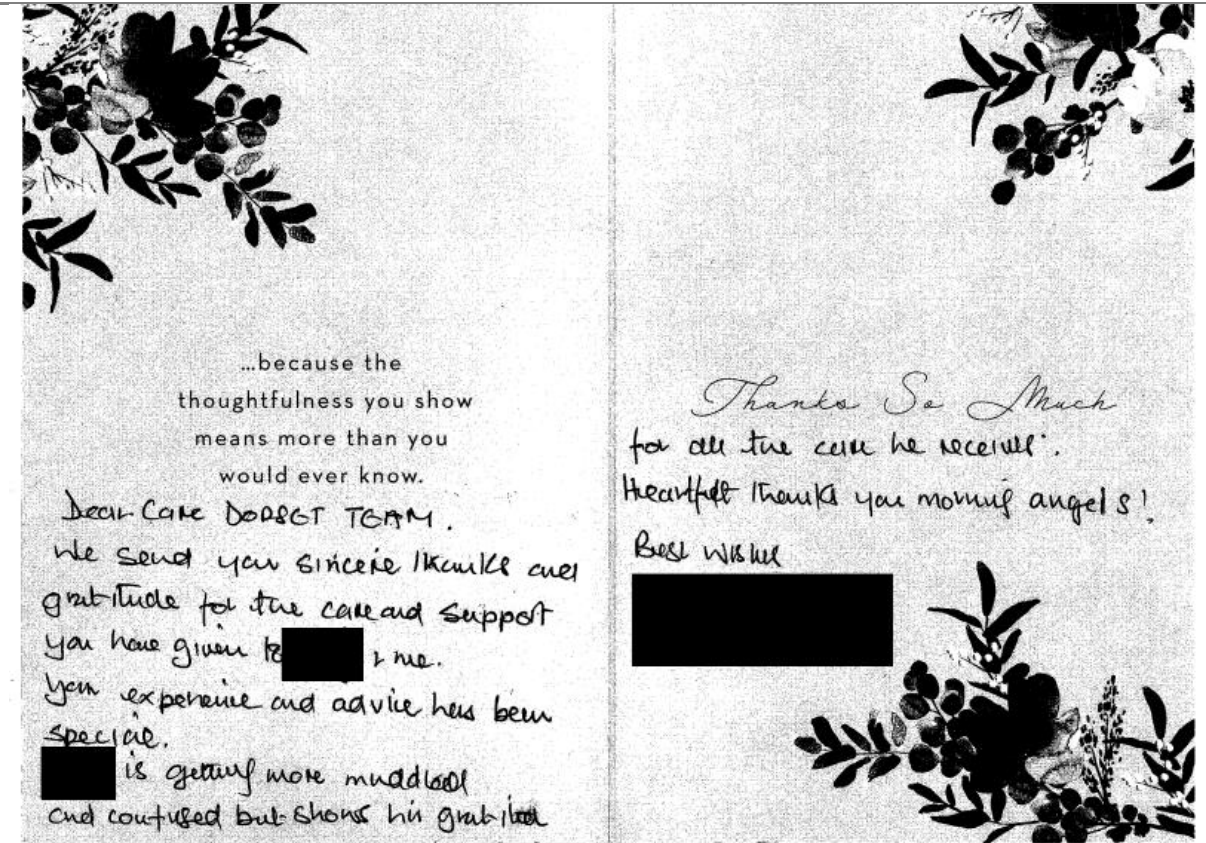 ...because the
thoughtfulness you show
means more than you
would ever know.
Dear Care DORSET TEAM.
We send you sincere thanks and
gratitude for the care and support
you have given to & me.
Your experience and advice has been
special.
is getting more muddled
and confused but shows his gratitude
Thanks So Much
for all the care he receives.
Heartfelt thanks you morning angels!
Best Wishes